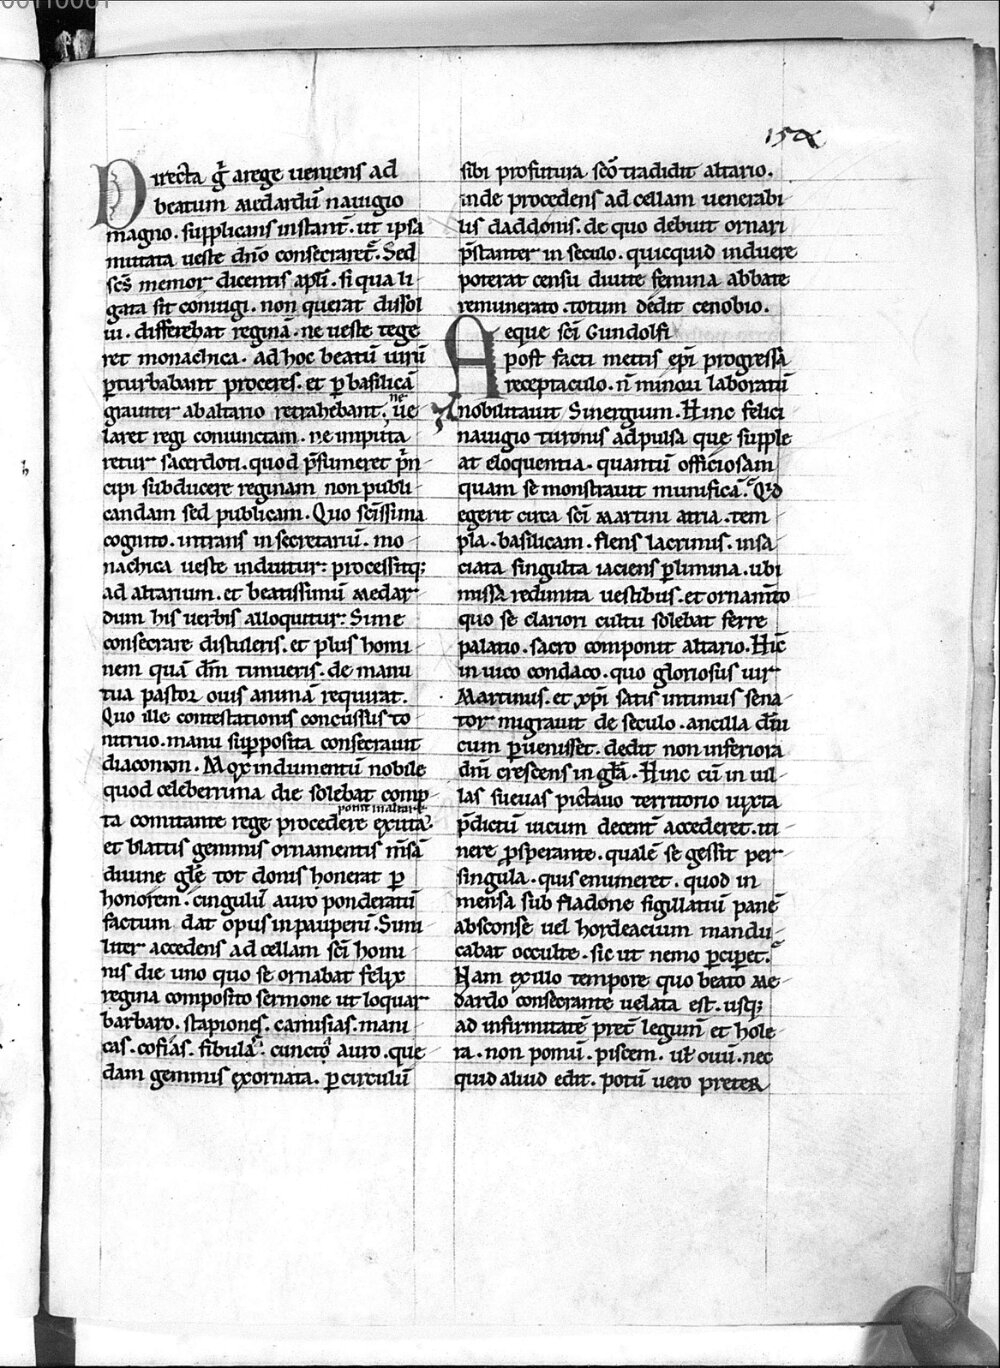 159
Directa g̃ arege ueniens ad
beatum medardū nauigio
magno. supplicans instant̄. ut ipsa
mutata ueste dn̄o consecraret᷑. Sed
scs̄ memor dicentis apl̄i. si qua li
gata sit coniugi. non querat dissol
ui. differebat reginā. ne ueste tege
ret monachica. ad hoc beatū uirū
ꝑturbabant proceres. et ꝑ basilicā
grauiter ab altario retrahebant. ne ue
laret regi coniunctam. ne imputa
retur sacerdoti. quod p̄sumeret prī
cipi subducere reginam non publi
candam sed publicam. Quo scīssima
cognito. intrans in secretariū. mo
nachica ueste induitur: processitq;
ad altarium. et beatissimū medar
dum his uerbis alloquitur: Si me
consecrare distuleris. et plus homi
nem quā dm̄ timueris. de manu
tua pastor ouis animā requirat.
Quo ille contestationis concussus to
nitruo. manu supposita consecrauit
diaconon. Mox indumentū nobile
quod celeberrima die solebat comp
ponit in altari
ta comitante rege procedere exuta.
et blattis gemmis ornamentis mēsā
diuine glē tot donis honerat ꝑ
honorem. cingulū auro ponderatū
factum dat opus in pauperū. Simi
liter accedens ad cellam scī homi
nis die uno quo se ornabat felix
regina composito sermone ut loquar
barbaro. stapiones. camisias. mani
cas. cofias. fibula. cuncto auro. que
dam gemmis exornata. ꝑ circulū
sibi profutura scō tradidit altario.
inde procedens ad cellam uenerabi
lis daddonis. de quo debuit ornari
p̄stanter in seculo. quicquid induere
poterat censu diuite femina abbate
remunerato. totum dedit cenobio.
Aeque scī Gundolfi
post facti mettis epī progressa
receptaculo. n̄ minori laboratū
nobilitauit Sinergium. Hinc felici
nauigio turonis adpulsa que supple
at eloquentia. quantū officiosam
quam se monstrauit munificā. Qid
egerit circa scī Martini atria. tem
pla. basilicam. flens lacrimis. insa
ciata singulta iaciens ꝑ limina. ubi
missa redimita uestibus. et ornam̄to
quo se clariori cultu solebat ferre
palatio. sacro componit altario. Hic̄
in uico condaco. quo gloriosus uir
Martinus. et xp̄i satis intimus sena
tor migrauit de seculo. ancilla dn̄i
cum ꝑuenisset. dedit non inferiora
dn̄i crescens in glā. Hinc cū in uil
las sueuas pictauo territorio iuxta
p̄dictū uicum decent̄ accederet. iti
nere ꝓsperante. qualē se gessit per
singula. quis enumeret. quod in
mensa sub fladone sigillatiū panē
absconse uel hordeacium mandu
cabat occulte. sic ut nemo ꝑciperet.
Nam ex illo tempore quo beato me
dardo consecrante uelata est. usq;
ad infirmitatē pret̄ legumē et hole
ra. non pomū. piscem. ul̄ ouū. nec
quid aliud edit. potū uero preter